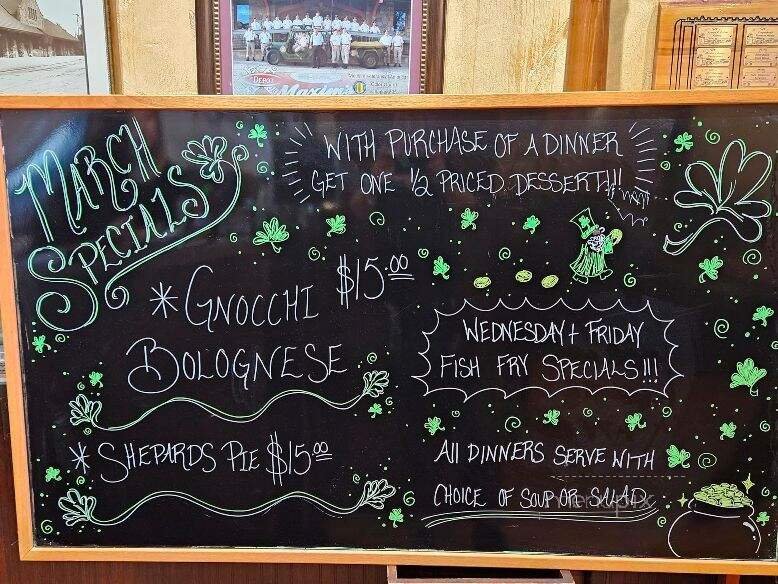 DEPOT
Maxim's
MARCH
SPECIALS
WITH PURCHASE OF A DINNER
GET ONE 1/2 PRICED DESSERT!!!
*GNOCCHI $15.00
BOLOGNESE
WEDNESDAY + FRIDAY
FISH FRY SPECIALS!!!
* SHEPARDS PIE $15.00
All DINNERS SERVE WITH
CHOICE OF SOUP OR SALAD
menupix